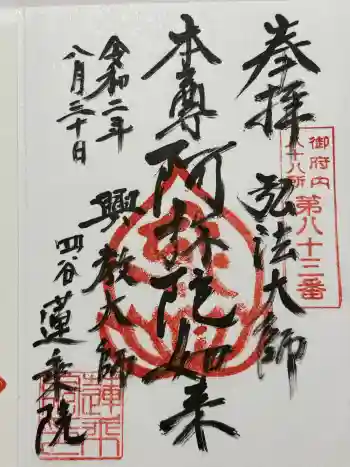 奉拝
御府内
八十八所
第八十三番
弘法大師
本尊
阿弥陀如来
興教大師
令和二年
八月三十日
四谷
蓮乗院